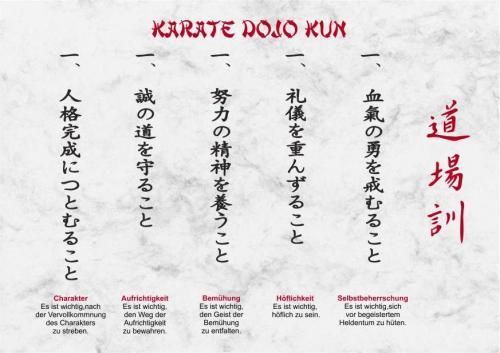 KARATE DOJO KUN
道場訓
一、血氣の勇を戒むること
一、礼儀を重んずること
一、努力の精神を養うこと
一、誠の道を守ること
一、人格完成につとむること
Charakter
Es ist wichtig,nach
der Vervollkommnung
des Charakters
zu streben.
Aufrichtigkeit
Es ist wichtig,
den Weg der
Aufrichtigkeit
zu bewahren.
Bemühung
Es ist wichtig,
den Geist der
Bemühung
zu entfalten.
Höflichkeit
Es ist wichtig,
höflich zu sein.
Selbstbeherrschung
Es ist wichtig,sich
vor begeistertem
Heldentum zu hüten.